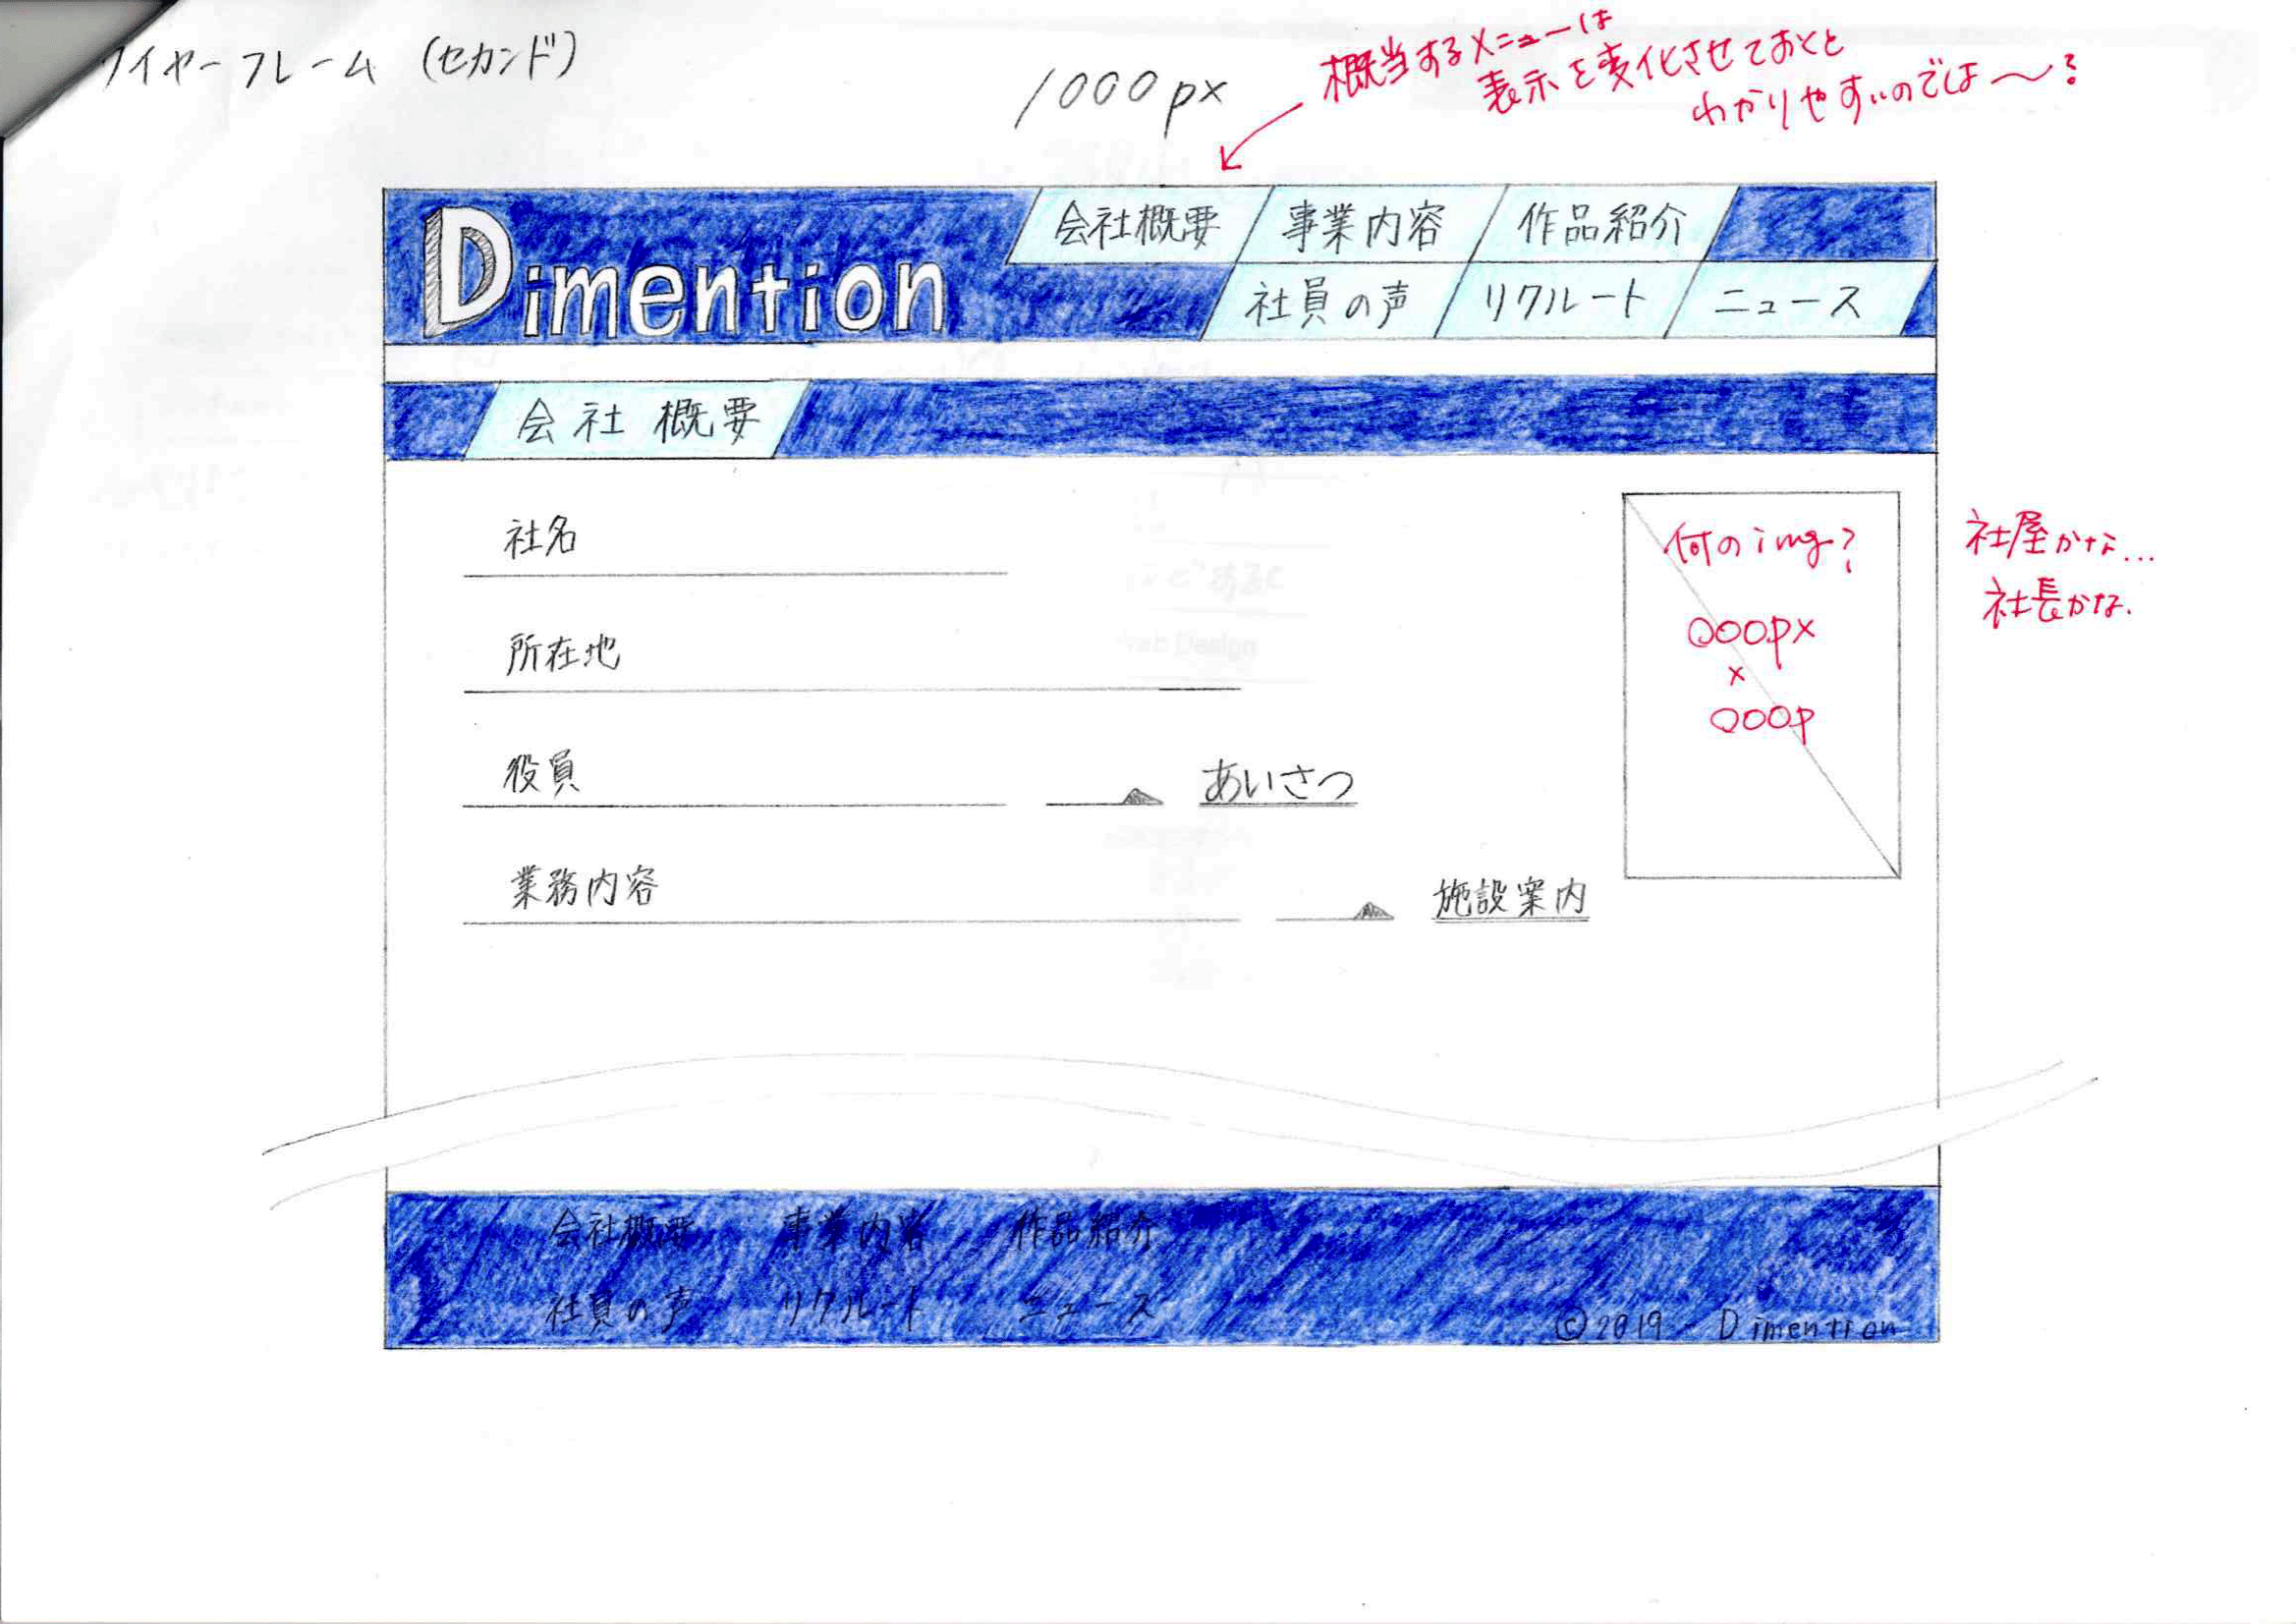 ワイヤーフレーム (セカンド)
1000px
概当するメニューは
表示を変化させておくと
わかりやすいのでは〜?
Dimention
会社概要 事業内容 作品紹介
社員の声 リクルート ニュース
会社概要
社名
所在地
役員 あいさつ
業務内容 施設案内
何のimg?
000px
x
000p
社屋かな...
社長かな.
会社概要 事業内容 作品紹介
社員の声 リクルート ニュース
©2019 - Dimention